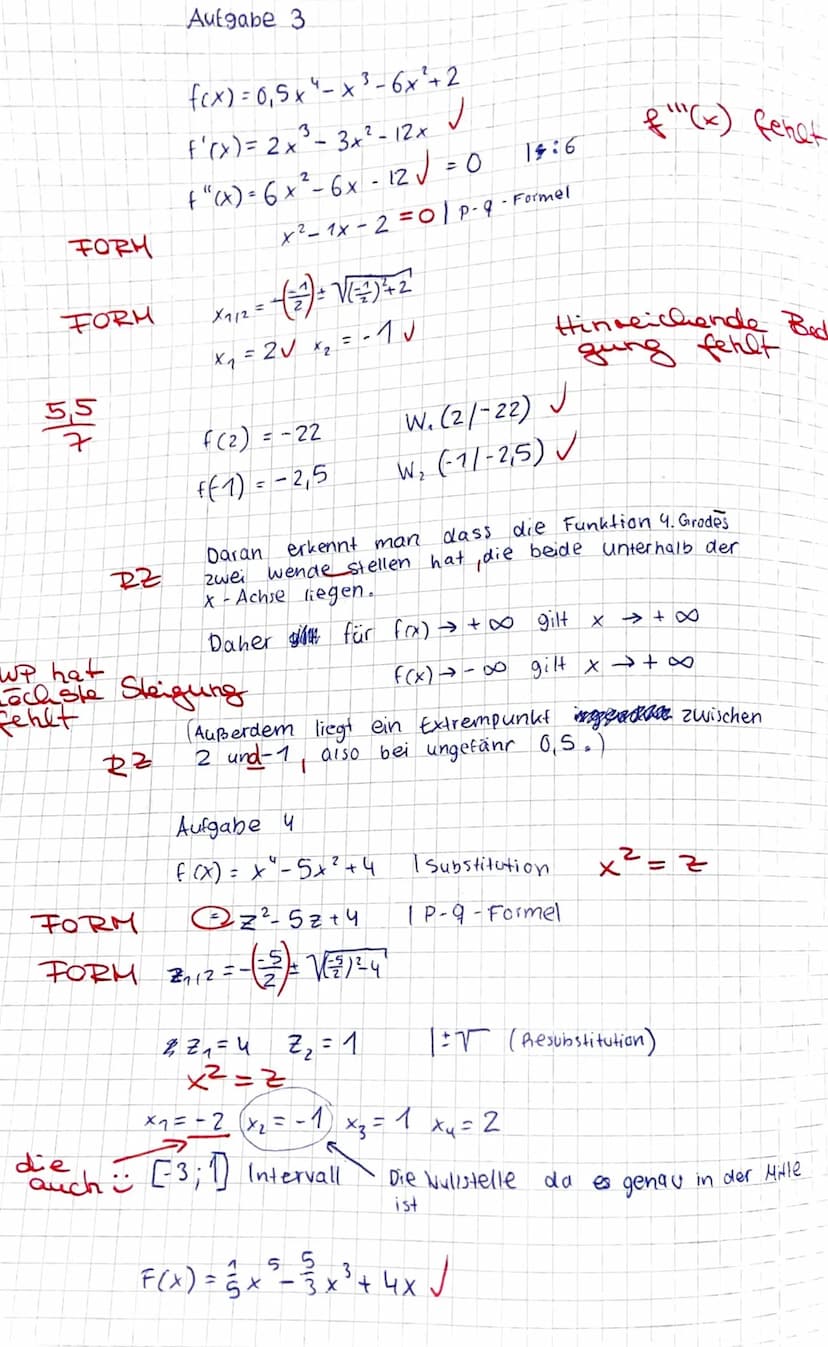 Aufgabe 3
f(x) = 0,5x⁴ - x³ - 6x² + 2
f'(x) = 2x³ - 3x² - 12x ✓
f'''(x) fehlt
f''(x) = 6x² - 6x - 12 ✓ = 0 | : 6
x² - 1x - 2 = 0 | p-q-Formel
FORM
FORM
x₁/₂ = -(-1/2) ± √((-1/2)² + 2)
x₁ = 2 ✓ x₂ = -1 ✓
Hinreichende Bed
gung fehlt
5,5/7
f(2) = -22 W₁ (2/-22) ✓
f(-1) = -2,5 W₂ (-1/-2,5) ✓
Daran erkennt man dass die Funktion 4. Grades
RZ zwei wende stellen hat, die beide unterhalb der
x-Achse liegen.
Daher für f(x) → +∞ gilt x → +∞
f(x) → -∞ gilt x → +∞
WP hat
öchste Steigung
fehlt
(Außerdem liegt ein Extrempunkt zwischen
RZ 2 und -1, also bei ungefähr 0,5.)
Aufgabe 4
f(x) = x⁴ - 5x² + 4 | Substitution x² = z
FORM = z² - 5z + 4 | P-q-Formel
FORM z₁/₂ = -(-5/2) ± √((-5/2)² - 4)
z₁ = 4 z₂ = 1 | ±√ (Resubstitution)
x² = z
x₁ = -2 x₂ = -1 x₃ = 1 x₄ = 2
die
auch :)
[-3; 1] Intervall Die Nullstelle da es genau in der Mitte
ist
F(x) = 1/5 x⁵ - 5/3 x³ + 4x ✓